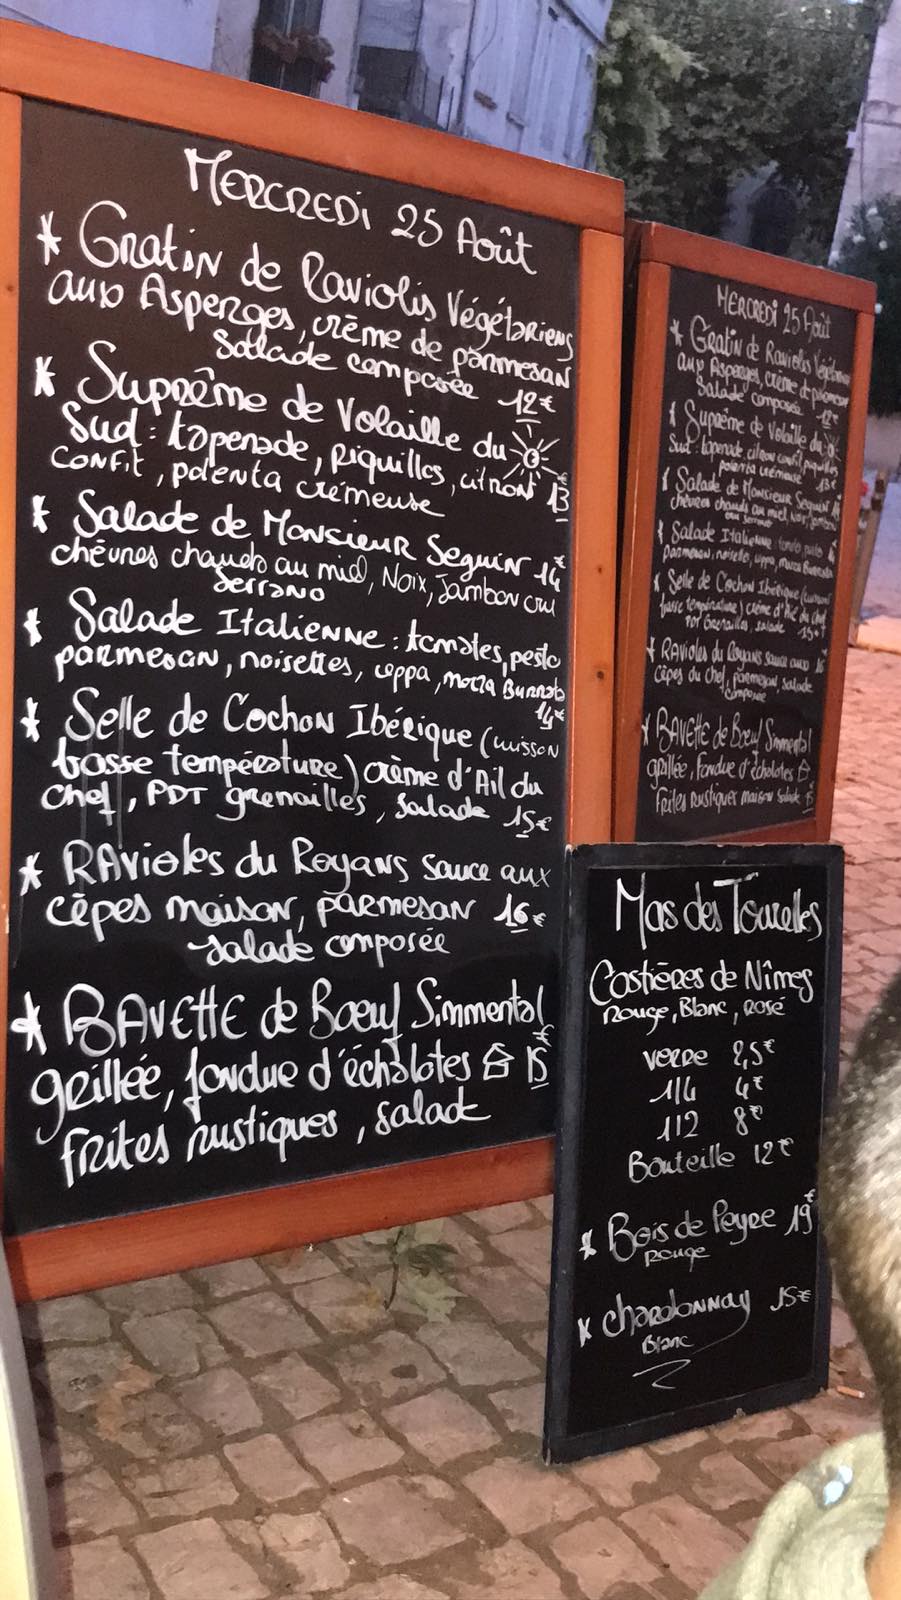 MERCREDi 25 Août
* Gratin de Raviolis Végétariens
aux Asperges, crème de parmesan
Salade composée 12€
* Suprême de Volaille du
Sud : tapenade, piquillos, citron 13€
confit, polenta crémeuse
* Salade de Monsieur Seguin 14€
chèvres chauds au miel, Noix, Jambon cru
Serrano
* Salade Italienne : tomates, pesto
parmesan, noisettes, coppa, mozza Burrata
14€
* Selle de Cochon Ibérique (cuisson
basse température) crème d'Ail du
chef, PDT grenailles, salade 15€
* RAvioles du Royans sauce aux
cèpes maison, parmesan 16€
salade composée
* BAVETTE de Bœuf Simmental
grillée, fondue d'échalotes 15€
frites rustiques, salade
MERCREDi 25 Août
* Gratin de Raviolis
aux Asperges, crème de parmesan
Salade composée 12€
* Suprême de Volaille du
Sud : tapenade, citron confit, piquillos
polenta crémeuse 13€
* Salade de Monsieur Seguin 14
chèvres chauds au miel, Noix, jambon
cru serrano
* Salade Italienne : tomate, pesto
parmesan, noisette, coppa, mozza Burrata
* Selle de Cochon Ibérique (cuisson
basse température) crème d'Ail du chef
PDT Grenailles, salade 15€
* RAvioles du Royans sauce aux 16
Cèpes du Chef, parmesan, salade
composée
* BAVETTE de Bœuf Simmental
grillée, Fondue d'échalotes
Frites Rustiques maison Salade 15
Mas des Tourelles
Costières de Nîmes
Rouge, Blanc, rosé
verre 2,5€
1/4 4€
1/2 8€
Bouteille 12€
* Bois de Peyre 19€
Rouge
* Chardonnay 15€
Blanc